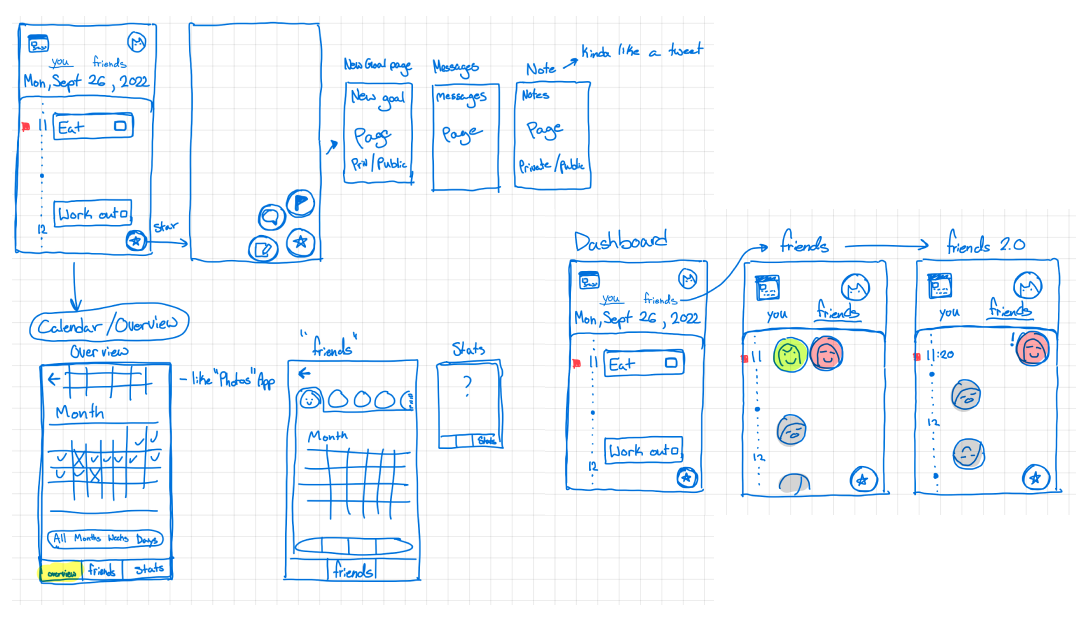 you friends
Mon, Sept 26, 2022
11
Eat
Work out
12
Star
New Goal page
New goal
Page
Priv/Public
Messages
Messages
Page
Note
Kinda like a tweet
Notes
Page
Private/public
Calendar/Overview
Overview
- like "Photos" App
Month
All Months Weeks Days
overview friends stats
"friends"
Month
friends
Stats
?
Stats
Dashboard
you friends
Mon, Sept 26, 2022
11
Eat
Work out
12
friends
you friends
11
12
friends 2.0
you friends
!
11:20
12